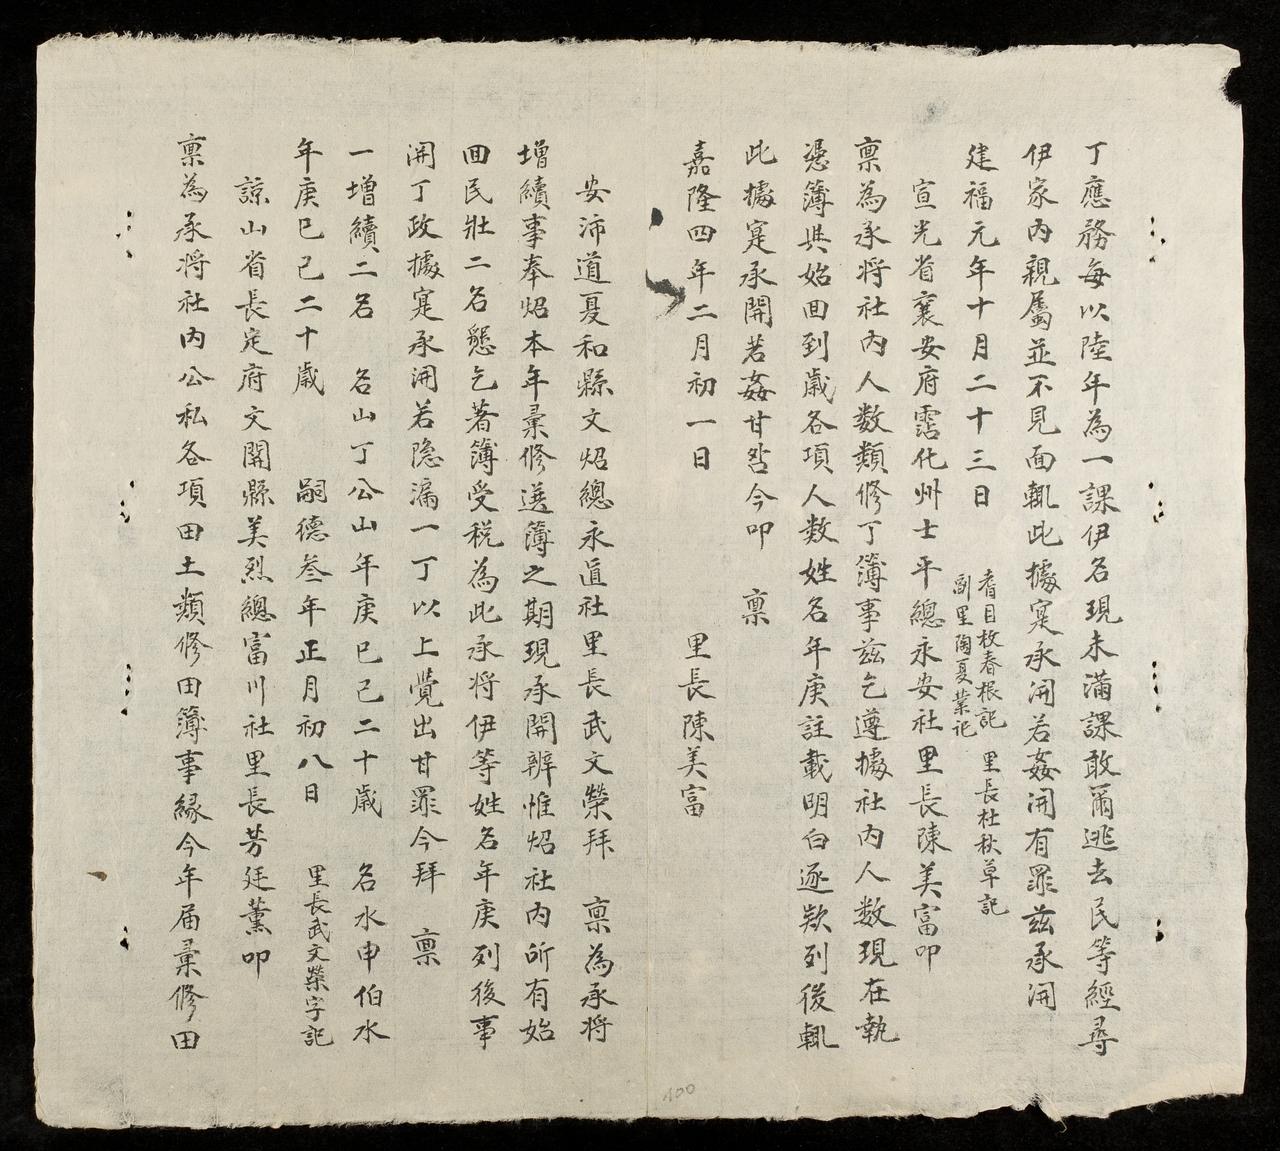 丁應務每以陸年為一課伊名現未滿課敢爾逃去民等經尋
伊家內親屬並不見面輒此據寔承開若姦開有罪茲承開
建福元年十月二十三日
耆目枚春根記 里長杜秋草記
副里陶夏業記
宣光省襄安府霑化州士平總永安社里長陳美富叩
禀為承將社內人数類修丁簿事茲乞遵據社內人数現在執
憑簿與始回到歲各項人数姓名年庚註載明白逐欵列後輒
此據寔承開若姦甘咎今叩 禀
嘉隆四年二月初一日 里長陳美富
安沛道夏和縣文炤總永道社里長武文榮拜 禀為承將
增續事奉炤本年彙修選簿之期現承開辨惟炤社內所有始
回民壯二名懇乞著簿受税為此承將伊等姓名年庚列後事
開丁政據寔承開若隐漏一丁以上覺出甘罪今拜 禀
一增續二名 名山丁公山年庚巳己二十歲 名水申伯水
年庚巳己二十歲 嗣德叁年正月初八日 里長武文榮字記
諒山省長定府文關縣美烈總富川社里長芳廷薰叩
禀為承將社內公私各項田土類修田簿事緣今年届彙修田
100